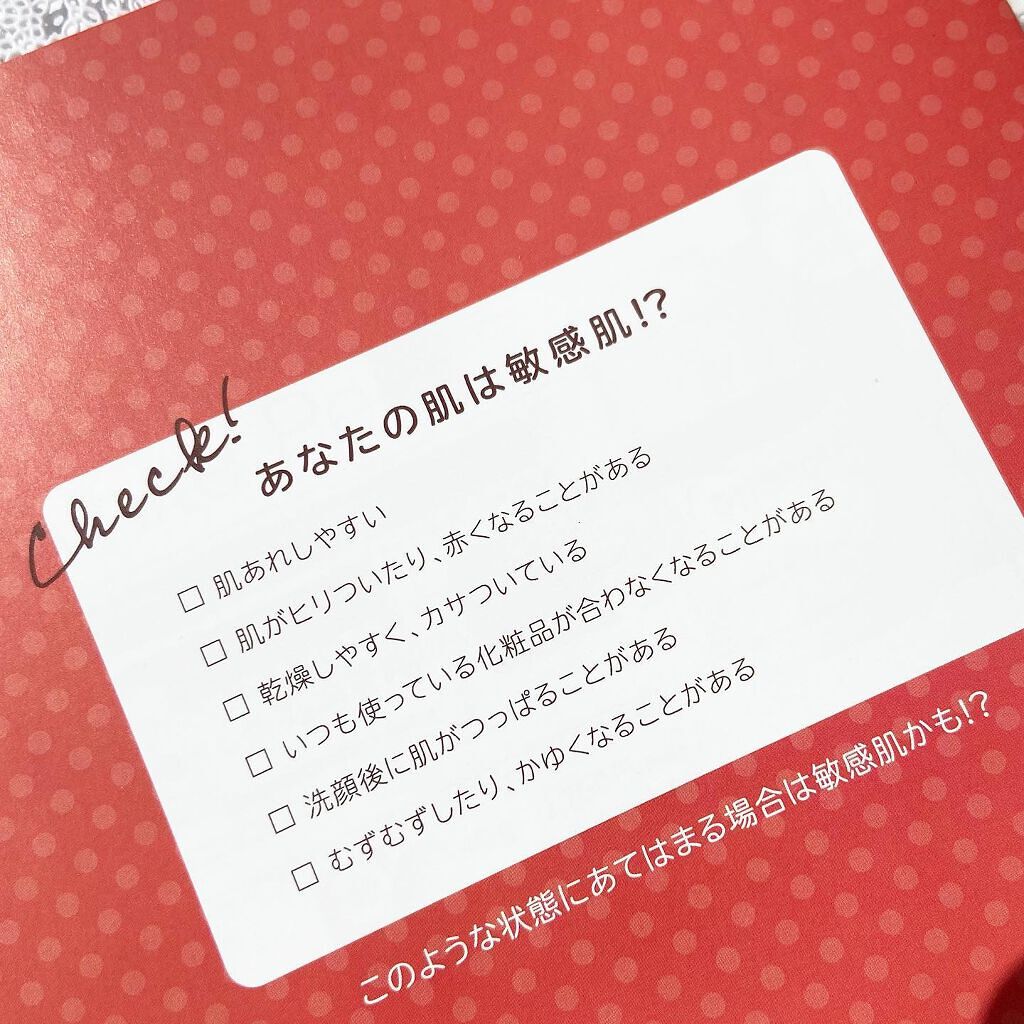 Check!
あなたの肌は敏感肌!?
□ 肌あれしやすい
□ 肌がヒリついたり、赤くなることがある
□ 乾燥しやすく、カサついている
□ いつも使っている化粧品が合わなくなることがある
□ 洗顔後に肌がつっぱることがある
□ むずむずしたり、かゆくなることがある
このような状態にあてはまる場合は敏感肌かも!?